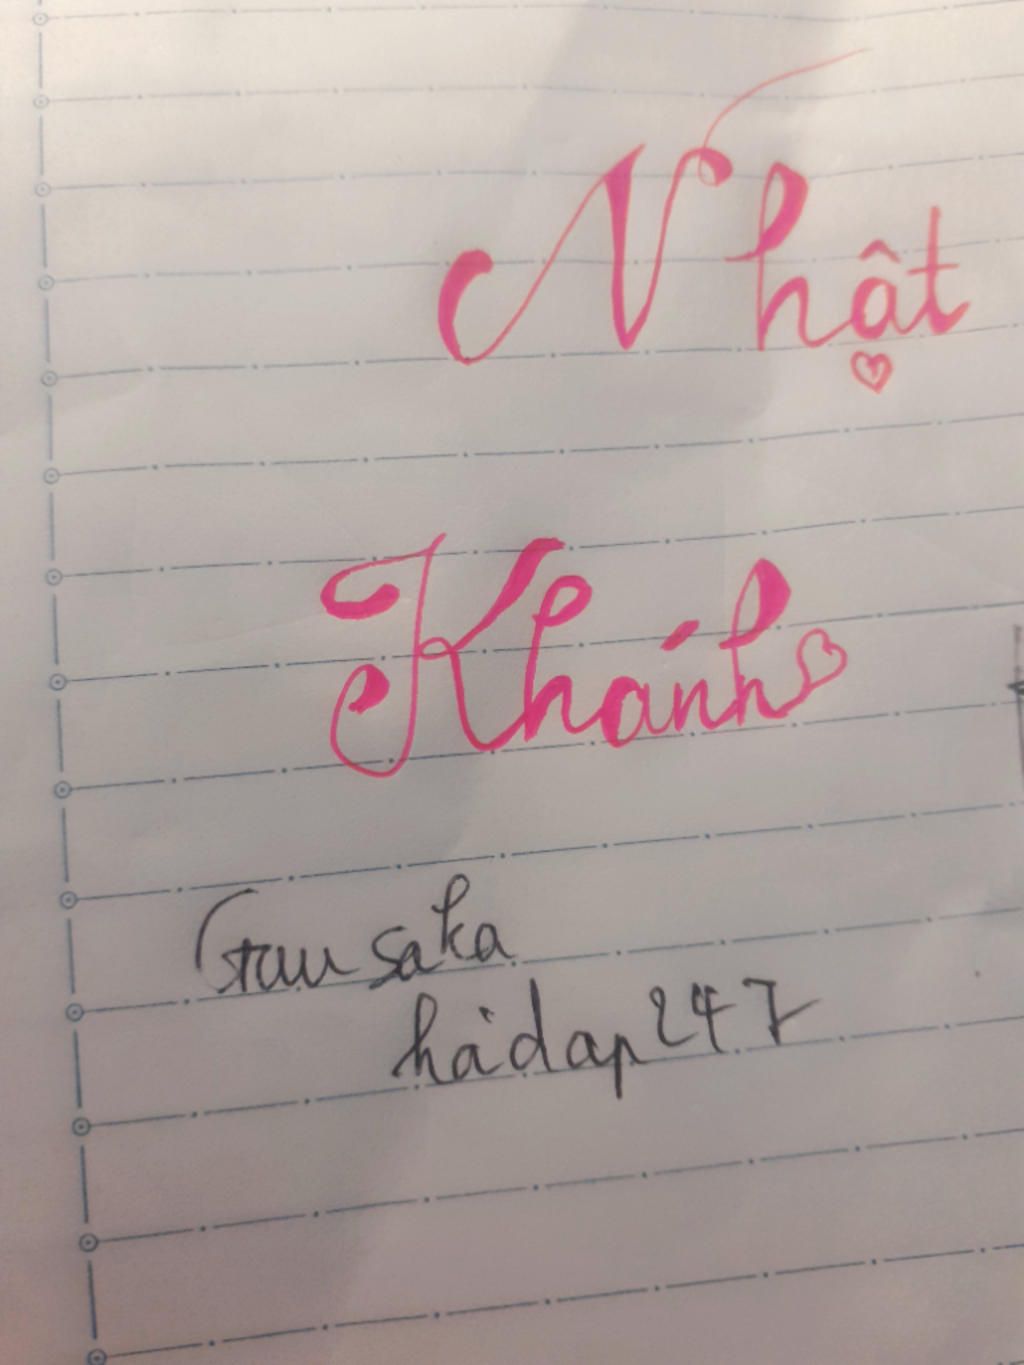 Nhật
Khánh
saka
hảdap247